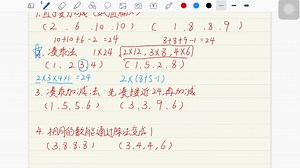 (2 . 6 . 10 . 10) (1 . 8 . 8 . 9)
10+10+6-2=24 3+8+9-1=24
凑乘法 1×24 2×12, 3×8, 4×6
(1 . 2 3 4) (1. 5. 2. 8)
2×3×4×1=24 2×(8+5-1)
3. 凑乘加减法: 先凑接近24,再加减
(1. 5. 5. 6) (3. 3. 9. 6)
4. 相同的数能通过除法变成1
(3. 8. 8. 8) (3. 4. 4, 6)